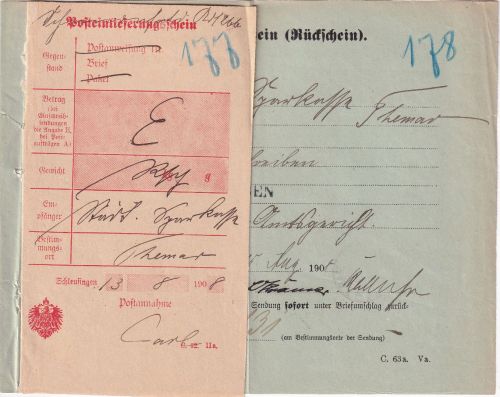 Posteinlieferungsschein
177
Gegen-
stand
Postanweisung
Brief
Paket
Betrag
(bei
Einschreib-
sendungen
die Angabe E,
bei Post-
aufträgen A)
E
Gewicht
g
Em-
pfänger
Städt. Sparkasse
Bestim-
mungs-
ort
Themar
Schleusingen 13 8 1908
Postannahme
C. 62. IIa.
ein (Rückschein).
178
Sparkasse
Themar
schreiben
EN
Amtsgericht.
Aug 190
Sendung sofort unter Briefumschlag zurück-
31
(am Bestimmungsorte der Sendung)
C. 63a. Va.